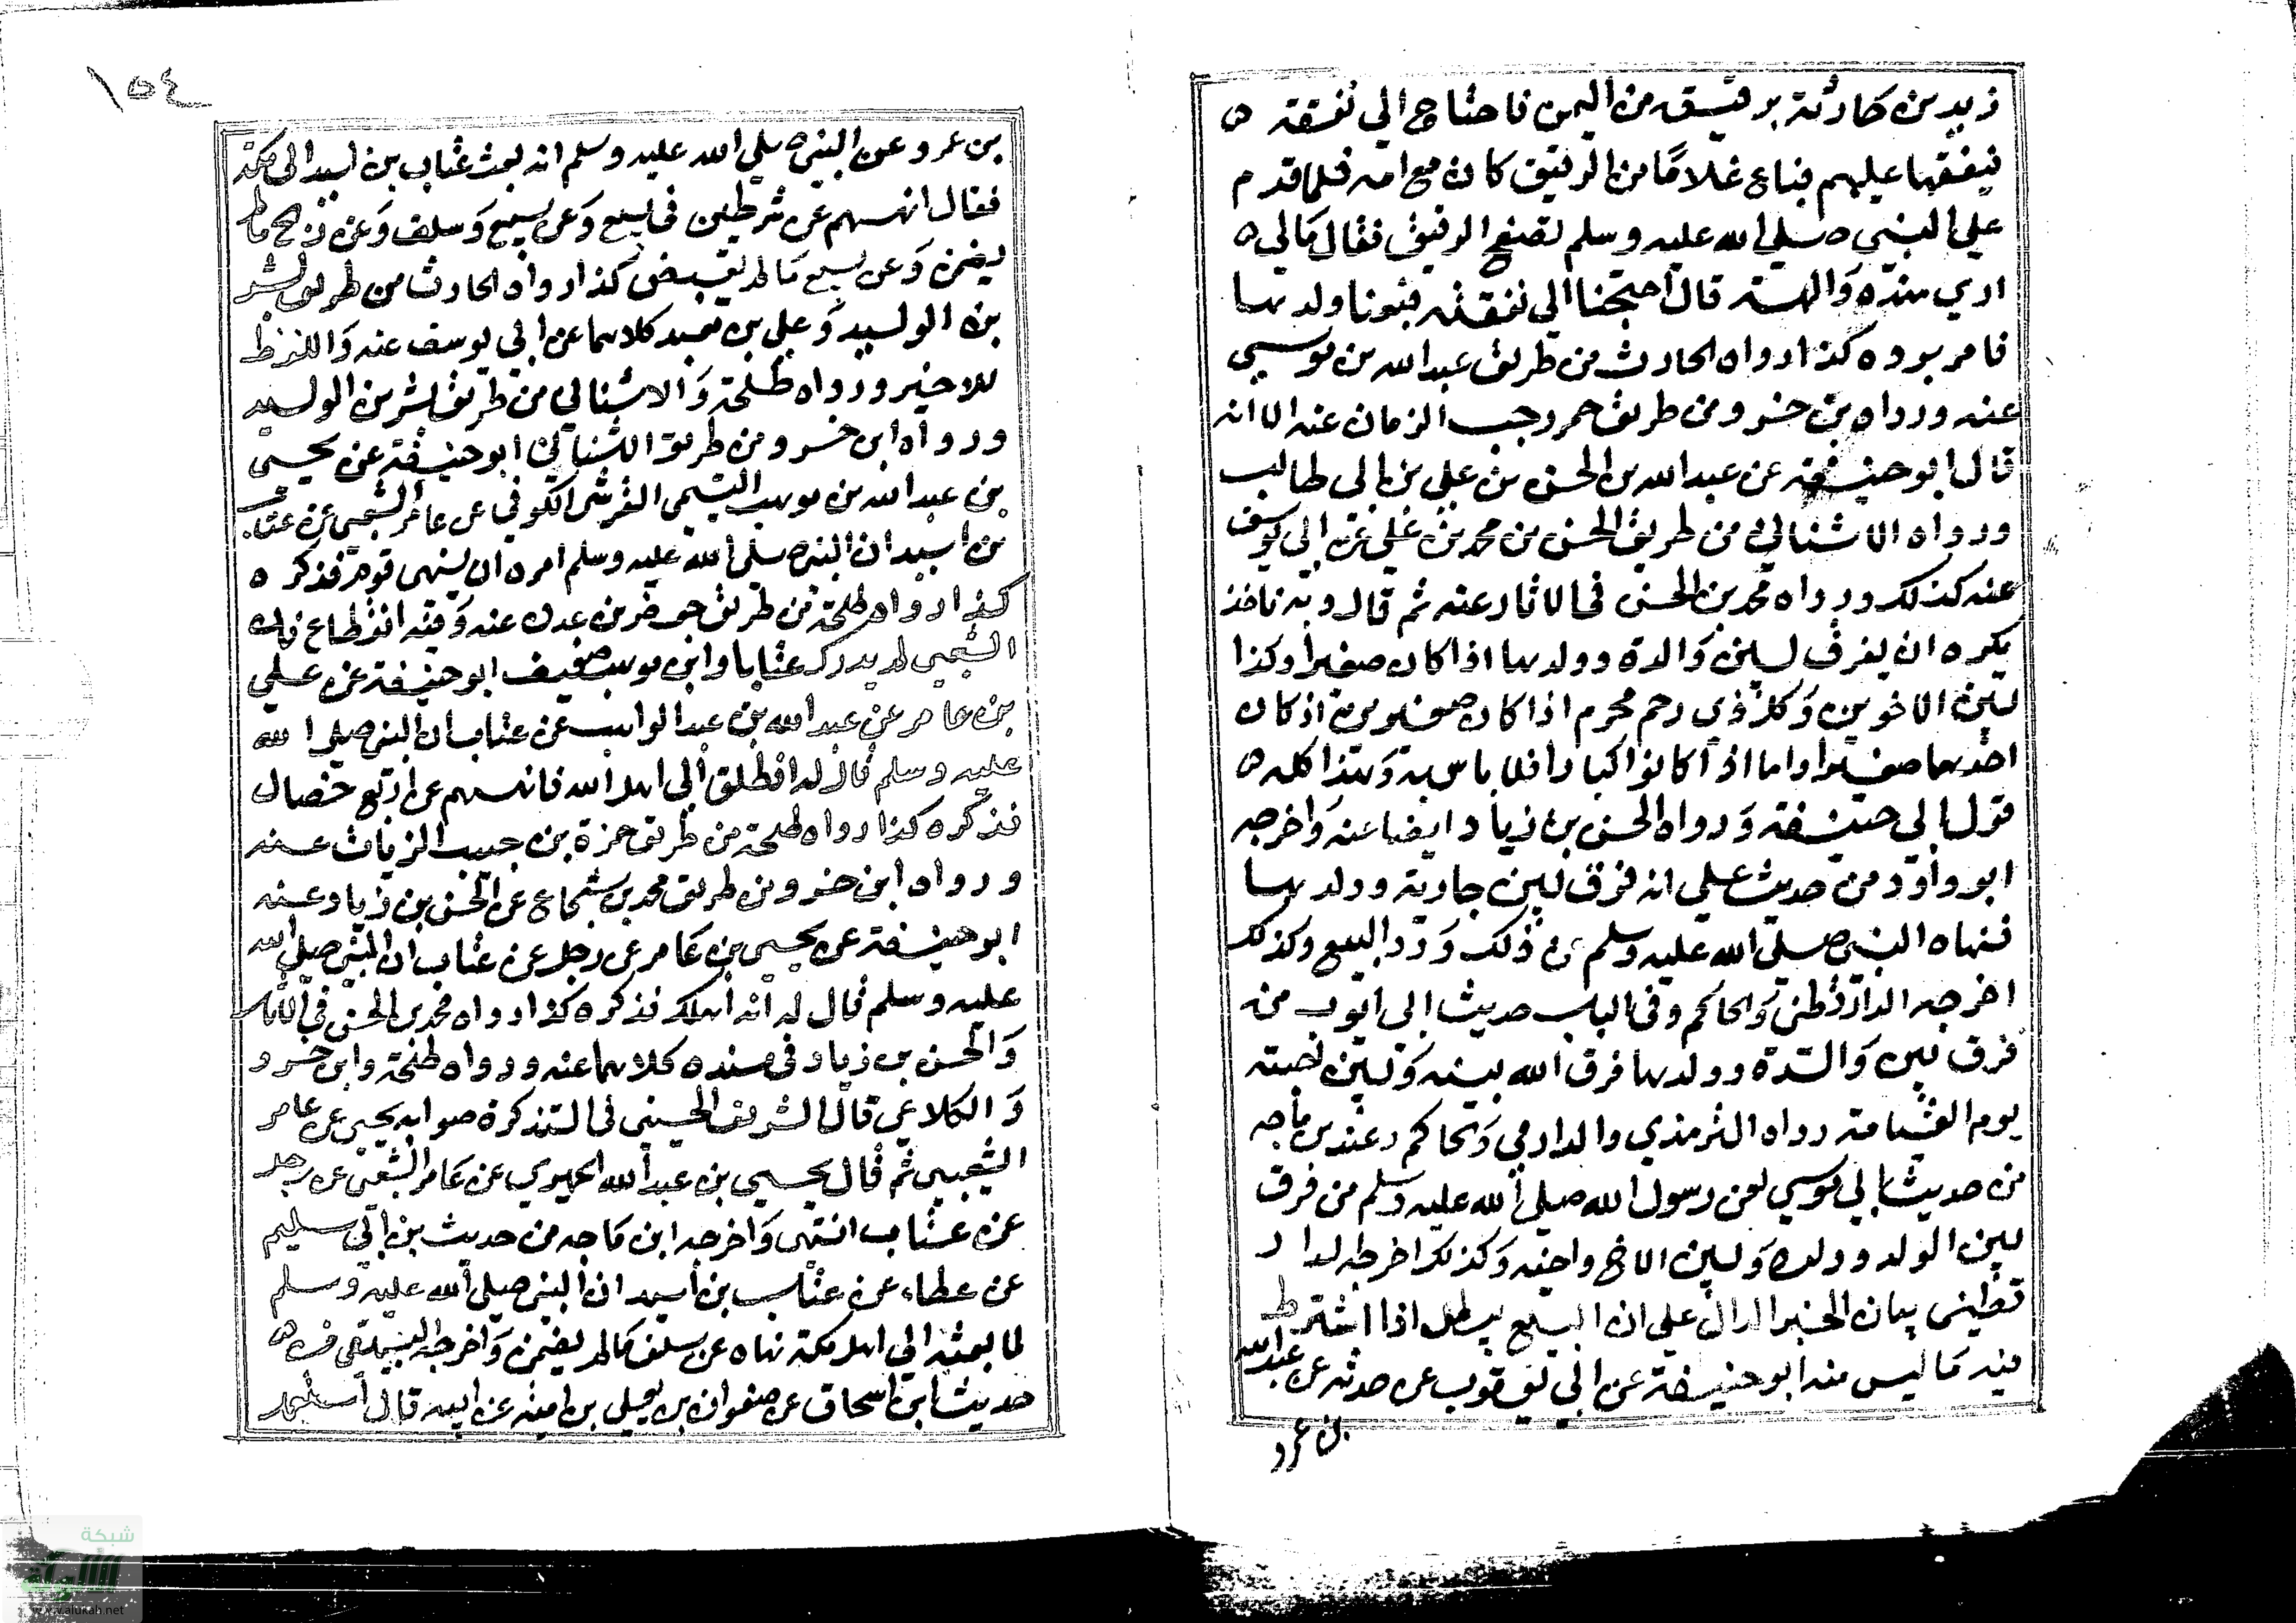 زيد بن حارثة برقيق من اليمن فاحتاج الي نفقة ه
ينفقها عليهم فباع غلامًا من الرقيق كان مع امه فلما قدم
علي النبي صلي الله عليه وسلم تصفح الرقيق فقال مالي ه
اري هذه والهة قال احتجنا الي نفقة فبعنا ولدها
فامر برده كذا رواه الحارث من طريق عبد الله بن موسي
عنه ورواه بن خسرو من طريق حمزه حبيب الزمان عنه الا انه
قال ابو حنيفة عن عبد الله بن الحسن بن علي بن ابي طالب
ورواه الاشناني من طريق الحسن بن محمد بن علي عن ابي يوسف
عنه كذلك ورواه محمد بن الحسن في الاثار عنه ثم قال وبه ناخذ
يكره ان يفرق بين والدة وولدها اذا كان صغيرا وكذا
بين الاخوين وكل ذي رحم محرم اذا كان صغيرين اذ كان
احدهما صغيرا واما اذا كانوا كبارا فلا باس به وهذا كله ه
قول ابي حنيفة ورواه الحسن بن زياد ايضا عنه واخرجه
ابو داود من حديث علي انه فرق بين جارية وولدها
فنهاه النبي صلي الله عليه وسلم عن ذلك ورد البيع وكذلك
اخرجه الدارقطني والحاكم وفي الباب حديث ابي ايوب من
فرق بين والدة وولدها فرق الله بينه وبين احبته
يوم القيامة رواه الترمذي والدارمي والحاكم وعند بن ماجه
من حديث ابي موسي لعن رسول الله صلي الله عليه وسلم من فرق
بين الولد وولده وبين الاخ واخيه وكذلك اخرجه الدار
قطني بيان الخبر الدال علي ان البيع يبطل اذا اشترط
فيه ما ليس منه ابو حنيفة عن ابي يعقوب عن حدثه عن عبد الله
بن عمرو
١٥٤
بن عمرو عن النبي صلي الله عليه وسلم انه بعث عتاب بن اسيد الي مكة
فقال انههم عن شرطين في بيع وعن بيع وسلف وعن ربح ما لم
يضمن وعن بيع ما لم يقبض كذا رواه الحارث من طريق بشر
بن الوليد وعلي بن معبد كلاهما عن ابي يوسف عنه واللفظ
للاخير ورواه طلحة والاشناني من طريق بشر بن الوليد
ورواه ابن خسرو من طريق الاشناني ابو حنيفة عن يحيي
بن عبد الله بن موهب التيمي القرشي الكوفي عن عامر الشعبي عن عتاب
بن اسيد ان النبي صلي الله عليه وسلم امره ان ينهي قومه فذكره
كذا رواه طلحة من طريق جعفر بن عون عنه وفيه انقطاع فان
الشعبي لم يدرك عتابا وابن موهب ضعيف ابو حنيفة عن علي
بن عامر عن عبد الله بن عبد الواهب عن عتاب ان النبي صلي الله
عليه وسلم قال له انطلق الي اهل الله فانههم عن اربع خصال
فذكره كذا رواه طلحة من طريق حمزة بن حبيب الزيات عنه
ورواه ابن خسرو من طريق محمد بن شجاع عن الحسن بن زياد عنه
ابو حنيفة عن يحيي بن عامر عن رجل عن عتاب ان النبي صلي الله
عليه وسلم قال له انه اهلك فذكره كذا رواه محمد بن الحسن في الاثار
والحسن بن زياد في مسنده كلاهما عنه ورواه طلحة وابن خسرو
والكلاعي قال الشريف الحسيني في التذكرة صوابه يحيي عن عامر
الشعبي ثم قال يحيي بن عبد الله عن عامر الشعبي عن رجل
عن عتاب انتهي واخرجه ابن ماجه من حديث بن ابي سليم
عن عطاء عن عتاب بن اسيد ان النبي صلي الله عليه وسلم
لما بعثه الي اهل مكة نهاه عن سلف مالم يضمن واخرجه البيهقي من ه
حديث ابن اسحاق عن صفوان بن يعلي بن امية عن ابيه قال استعمل
شبكة
الألوكة
www.alukah.net